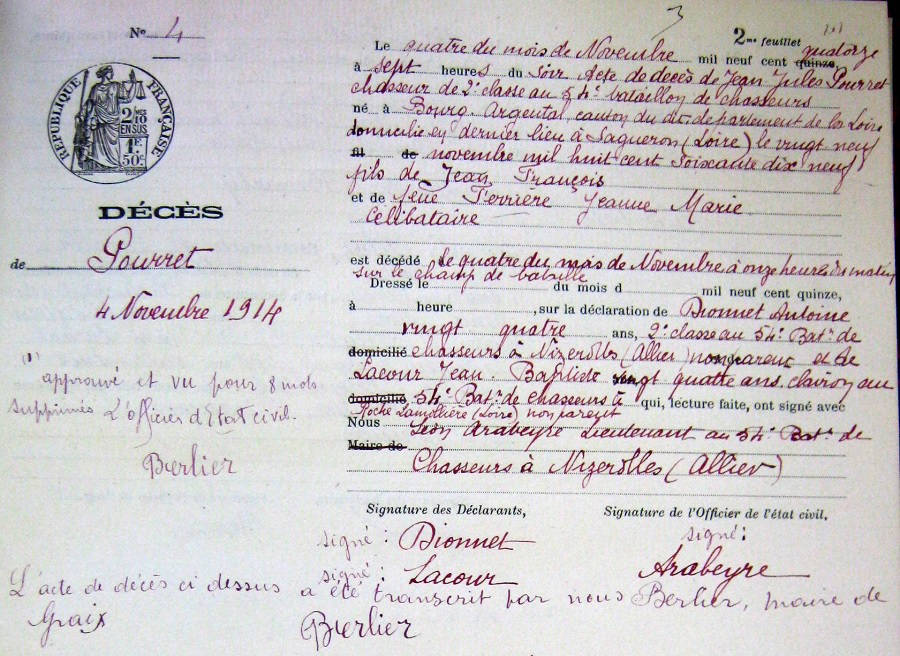 3
Nº 4
2me feuillet (1)
Le quatre du mois de Novembre mil neuf cent quinze, quatorze
à sept heures du soir Acte de décès de Jean Jules Pourret
chasseur de 2e classe au 54e bataillon de chasseurs
né à Bourg-Argental, canton du dit département de la Loire
domicilié en dernier lieu à (Loire) le vingt neuf
fil de novembre mil huit cent soixante dix neuf
fils de Jean François
et de feue Ferrière Jeanne Marie
Célibataire
est décédé le quatre du mois de Novembre à onze heures du matin
sur le champ de bataille
Dressé le du mois d mil neuf cent quinze,
à heure , sur la déclaration de Dionnet Antoine
vingt quatre ans, 2e classe au 54e Batn de
domicilié chasseurs à Nizerolles (Allier) non parent et de
Lacour Jean-Baptiste vingt quatre ans clairon au
domicilié 54e Batn de chasseurs à qui, lecture faite, ont signé avec
Roche Lamolière (Loire) non parent
Nous Léon Arabeyre Lieutenant au 54e Batn de
Maire de Chasseurs à Nizerolles (Allier)
RÉPUBLIQUE FRANÇAISE
2/10mes
EN SUS
1F.
50c.
DÉCÈS
de Pourret
4 Novembre 1914
(1)
approuvé et vu pour 8 mots
supprimés L'officier d'Etat civil.
Berlier
Signature des Déclarants, Signature de l'Officier de l'état civil,
signé : Dionnet signé :
signé : Lacour Arabeyre
L'acte de décès ci dessus a été transcrit par nous Berlier, maire de
Graix Berlier